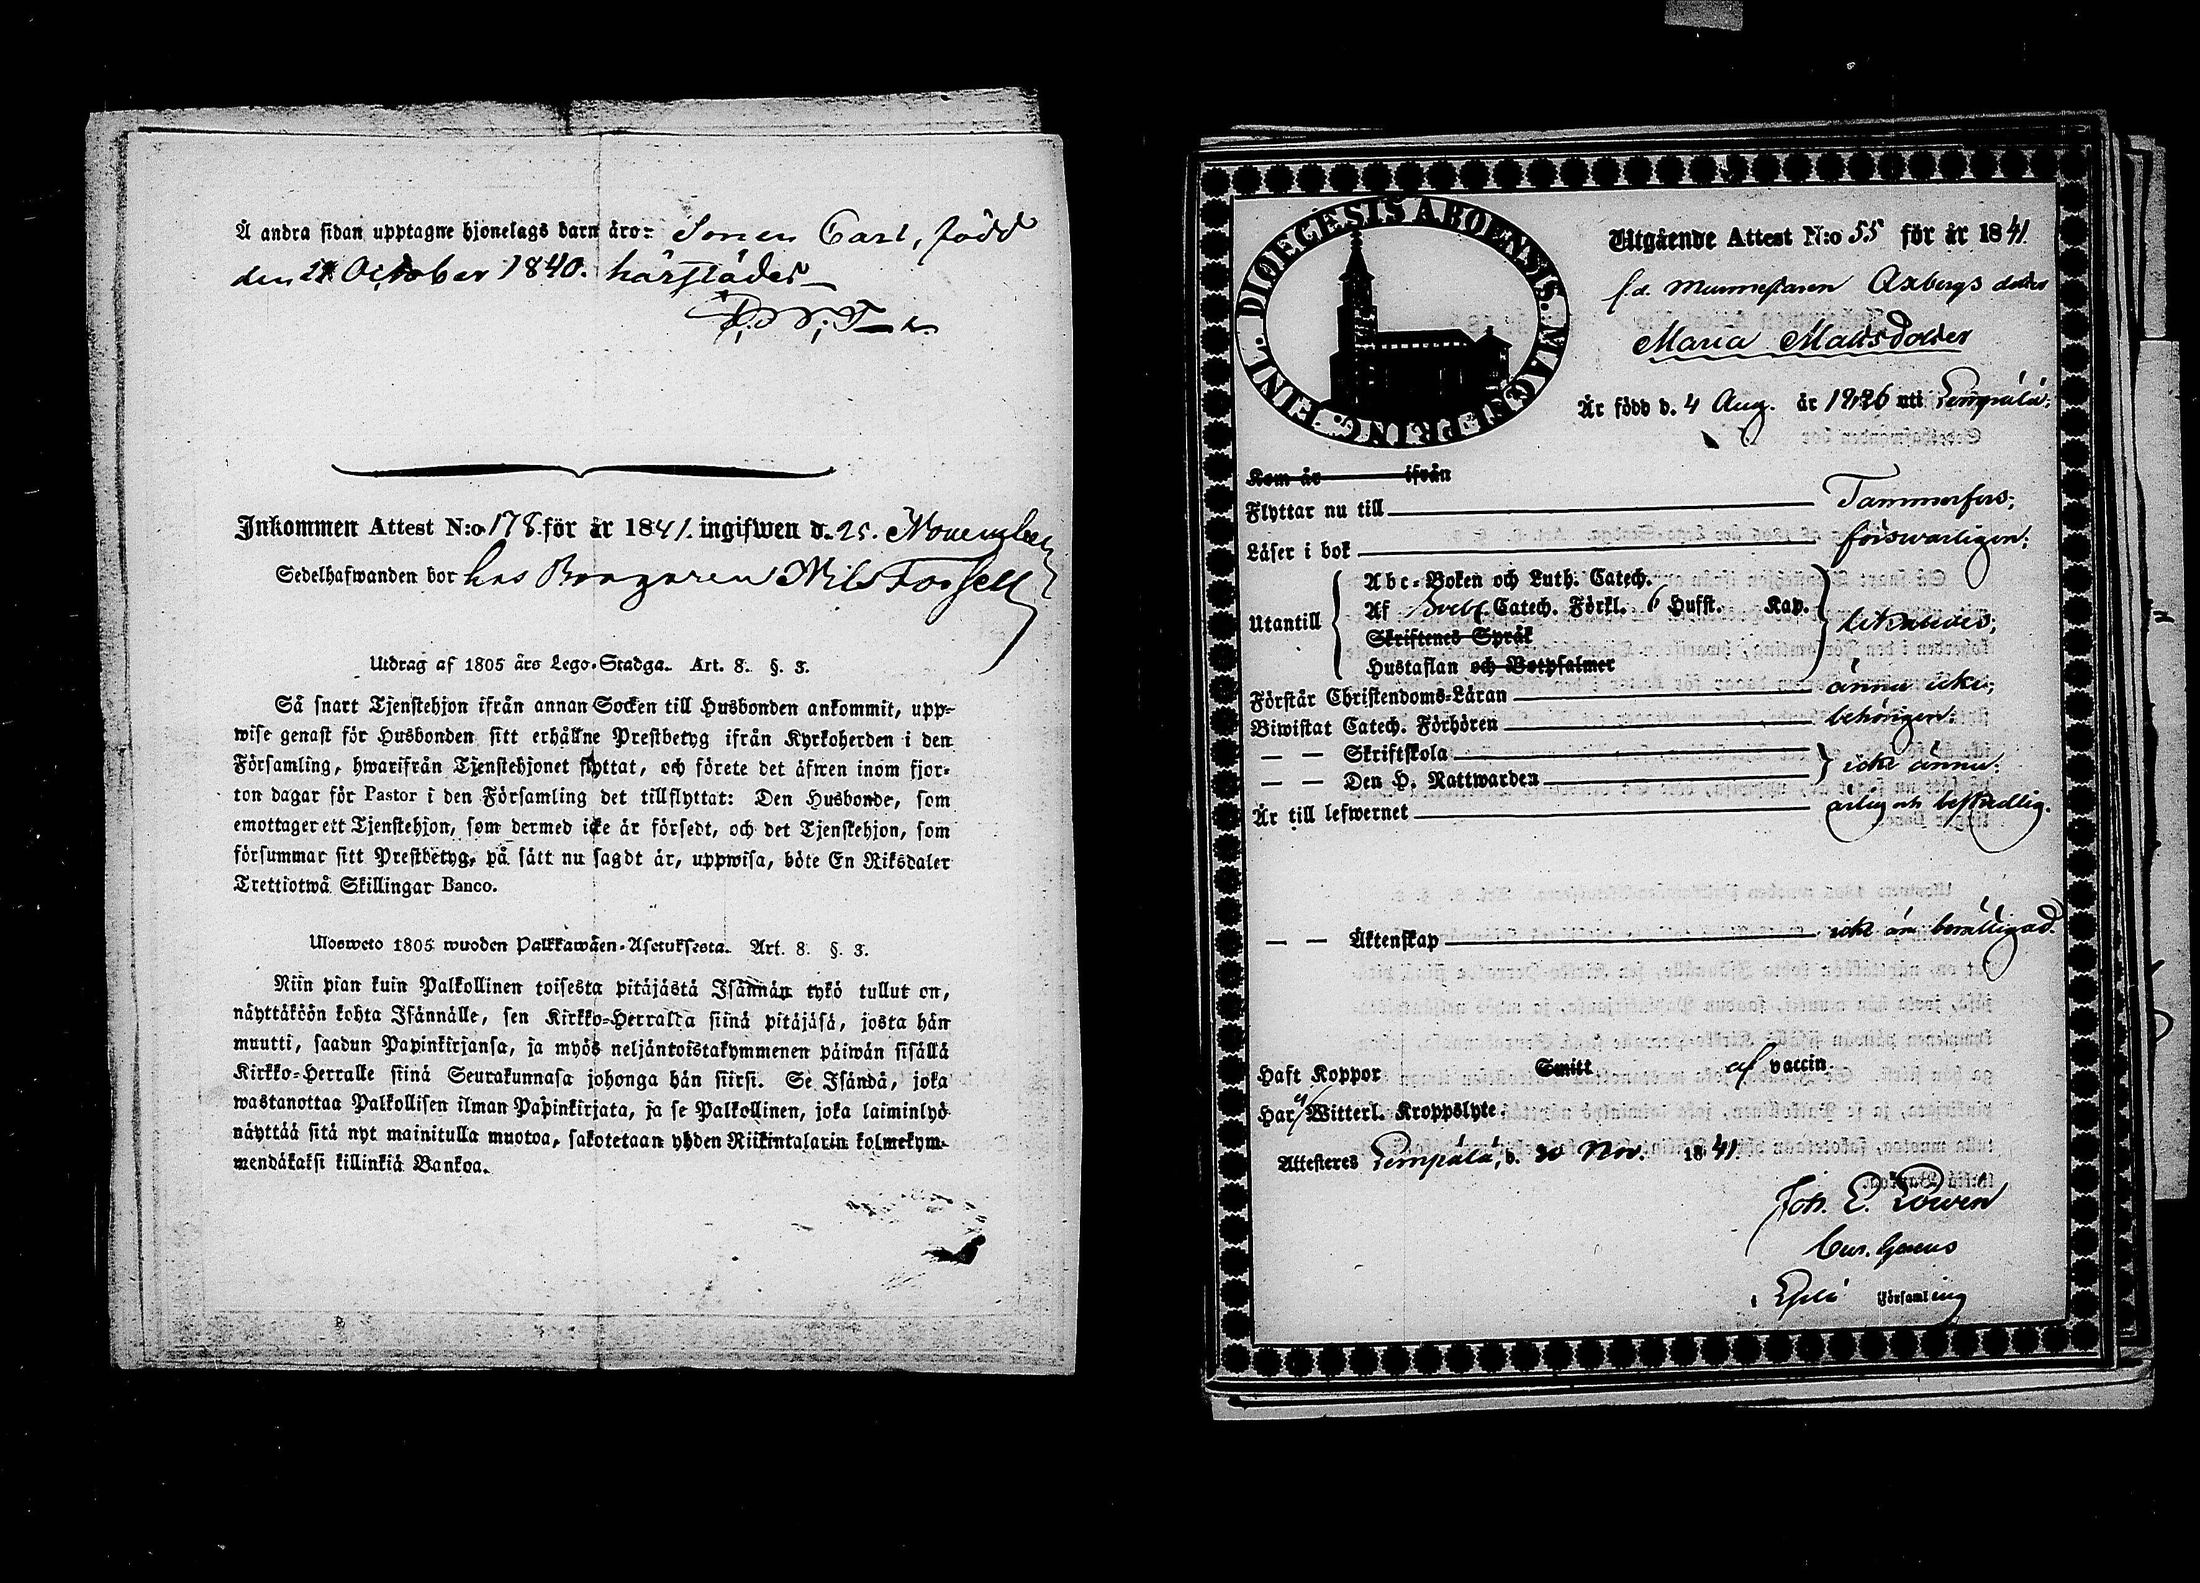 Å andra sidan upptagne hjonelags barn äro: Sonen Carl, född
den 21 October 1840. härstädes
Inkommen Attest N:o 178 för år 1841. ingifwen d. 25. November
Sedelhafwanden bor hos Borgaren Nils Forsell
Utdrag af 1805 års Lego-Stadga. Art. 8. §. 3.
Så snart Tjenstehjon ifrån annan Socken till Husbonden ankommit, upp-
wise genast för Husbonden sitt erhållne Prestbetyg ifrån Kyrkoherden i den
Församling, hwarifrån Tjenstehjonet flyttat, och förete det äfwen inom fjor-
ton dagar för Pastor i den Församling det tillflyttat: Den Husbonde, som
emottager ett Tjenstehjon, som dermed icke är försedt, och det Tjenstehjon, som
försummar sitt Prestbetyg, på sätt nu sagdt är, uppwisa, böte En Riksdaler
Trettiotwå Skillingar Banco.
Ulosweto 1805 wuoden Palkkawäen-Asetuksesta. Art. 8. §. 3.
Niin pian kuin Palkollinen toisesta pitäjästä Isännän tykö tullut on,
näyttäköön kohta Isännälle, sen Kirkko-Herralta siinä pitäjäsä, josta hän
muutti, saadun Papinkirjansa, ja myös neljäntoistakymmenen päiwän sisällä
Kirkko-Herralle siinä Seurakunnasa johonga hän siirsi. Se Isändä, joka
wastanottaa Palkollisen ilman Papinkirjata, ja se Palkollinen, joka laiminlyö
näyttää sitä nyt mainitulla muotoa, sakotetaan yhden Riikintalarin kolmekym-
mendäkaksi killinkiä Bankoa.
DIOECESIS ABOENSIS. MAGNI PRINC. FINL.
Utgående Attest N:o 55 för år 1841
f.d. Axbergs dotter
Maria Mattsdotter
Är född d. 4 Aug. år 1826 uti Lempälä;
Kom år ifrån
Flyttar nu till Tammerfors;
Läser i bok förswarligen;
Abc-Boken och Luth. Catech.
Utantill Af Svebel. Catech. Förkl. 6 Hufst. Kap. likaledes;
Skriftenes Språk
Hustaflan och Botpsalmer
Förstår Christendoms-Läran ännu icke;
Biwistat Catech. Förhören behörigen;
— — Skriftskola
— — Den H. Nattwarden icke ännu;
Är till lefwernet ärlig och beskedlig.
— — Äktenskap icke än berättigad.
Haft Koppor Smitt af vaccin.
Har ej Witterl. Kroppslyte.
Attesteres Lempälä, d. 20 Nov. 1841
Joh. E.
församling